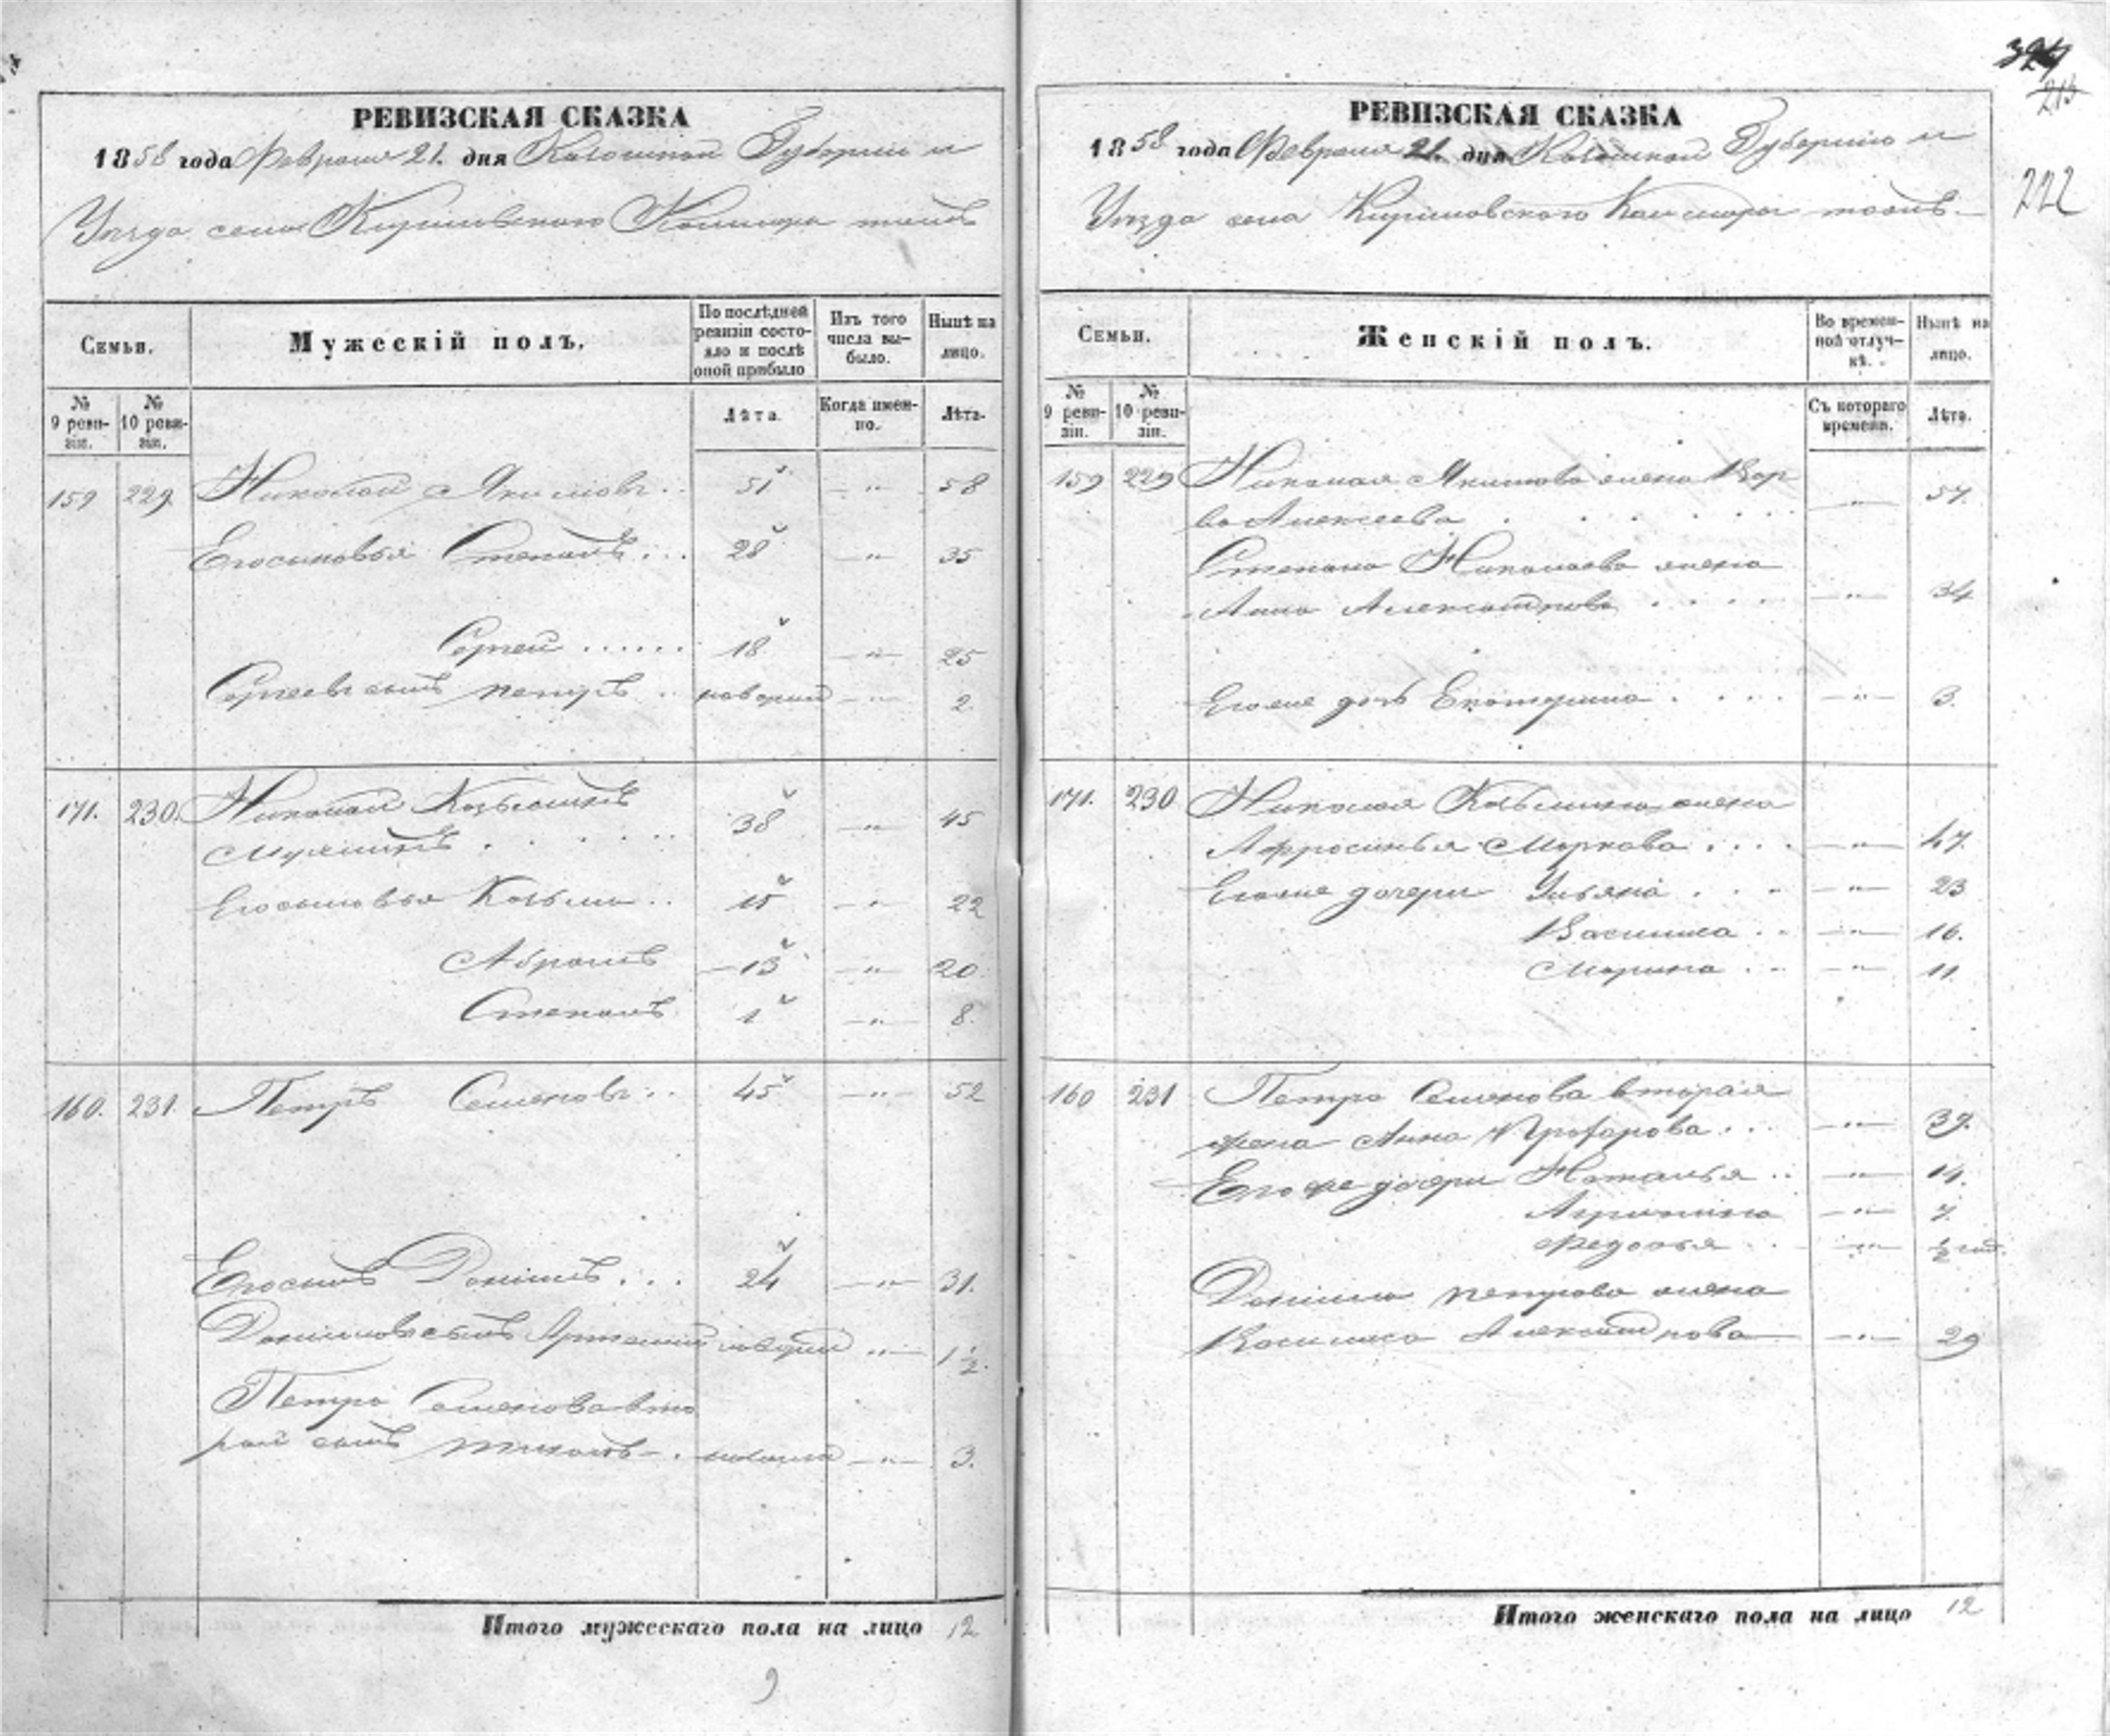 РЕВИЗСКАЯ СКАЗКА
1858 года Февраля 21. дня Губернии и
Уезда села Кириловского томъ
Семьи.
Мужескій полъ.
По послѣдней ревизіи состо-
яло и послѣ
оной прибыло
Изъ того
числа вы-
было.
Нынѣ на
лицо.
№
9 реви-
зіи.
№
10 реви-
зіи.
Лѣта.
Когда имен-
но.
Лѣта.
159 229. Николай Якимовъ .. 51 — " — 58
Его сыновья Степанъ ... 28 — " — 35
Сергей ...... 18 — " — 25
Сергеевъ сынъ петръ .. — " — 2
171. 230. Николай Козьминъ
. . . . . 38 — " — 45
Его сыновья Козьма .. 15 — " — 22
Абрамъ 13 — " — 20
Степанъ 1 — " — 8.
160. 231. Петръ Семеновъ .. 45 — " — 52
Его сынъ Данилъ ... 24 — " — 31.
Даниловъ сынъ " — 1 1/2.
Петра Семенова вто
рой сынъ — " — 3.
Итого мужескаго пола на лицо 12
9
324
213
222
РЕВИЗСКАЯ СКАЗКА
1858 года Февраля 21. дня Губернии и
Уезда села Кириловского томъ.
Семьи.
Женскій полъ.
Во времен-
ной отлуч-
кѣ.
Нынѣ на
лицо.
№
9 реви-
зіи.
№
10 реви-
зіи.
Съ котораго
времени.
Лѣта.
159 229 Николая Якимова жена Вар
ва Алексеева . . . . . . " — 57.
Степана Николаева жена
Анна Александрова . . . . — " — 34
Его же дочь Екатерина . . . . — " — 3.
171. 230 Николая Козьмина жена
Афросинья Маркова .... — " — 47.
Его же дочери Ульяна . . . — " — 23
Василиса . . — " — 16.
Марина . . — " — 11.
160 231 Петра Семенова вторая
жена Анна ... — " — 39.
Его же дочери Наталья .. — " — 14.
Агрипина — " — 7.
Федосья . . — " — 1/2 год.
Данила петрова жена
Василиса Александрова — " — 29
Итого женскаго пола на лицо 12